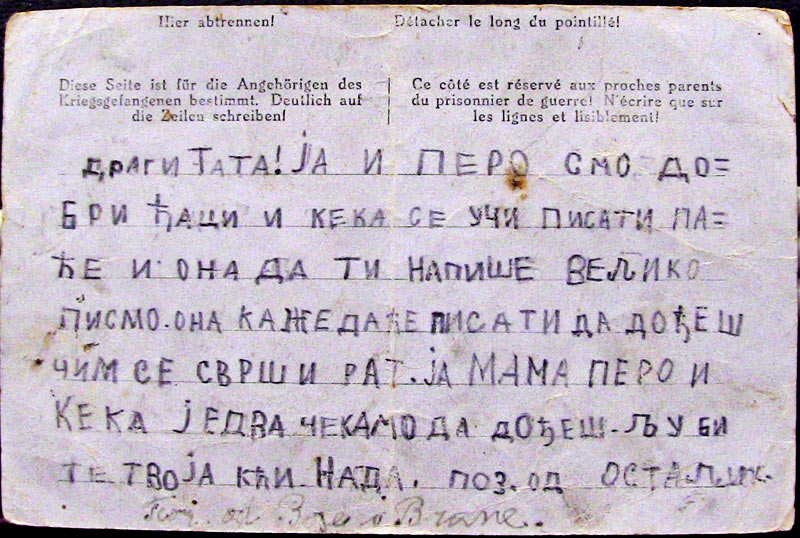 Hier abtrennen!
Détacher le long du pointillé!
Diese Seite ist für die Angehörigen des
Kriegsgefangenen bestimmt. Deutlich auf
die Zeilen schreiben!
Ce côté est réservé aux proches parents
du prisonnier de guerre! N'écrire que sur
les lignes et lisiblement!
ДРАГИ ТАТА! ЈА И ПЕРО СМО ДО=
БРИ ЂАЦИ И КЕКА СЕ УЧИ ПИСАТИ ПА=
ЋЕ И ОНА ДА ТИ НАПИШЕ ВЕЉИКО
ПИСМО. ОНА КАЖЕ ДА ЋЕ ПИСАТИ ДА ДОЂЕШ
ЧИМ СЕ СВРШИ РАТ. ЈА МАМА ПЕРО И
КЕКА ЈЕДВА ЧЕКАМО ДА ДОЂЕШ - ЉУБИ
ТЕ ТВОЈА КЋИ НАДА. ПОЗ. ОД
od